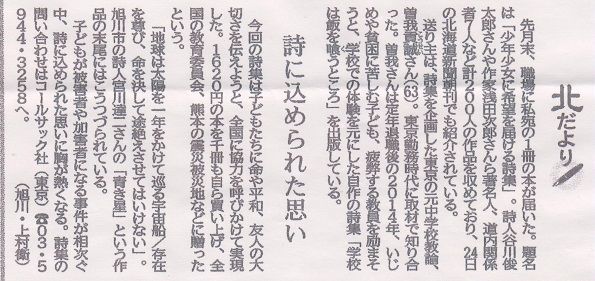 北だより
先月末、職場に私宛の1冊の本が届いた。題名
は「少年少女に希望を届ける詩集」。詩人谷川俊
太郎さんや作家浅田次郎さんら著名人、道内関係
者7人など計200人の作品を収めており、24日
の北海道新聞朝刊でも紹介されている。
送り主は、詩集を企画した東京の元中学校教諭、
曽我貢誠さん(63)。東京勤務時代に取材で知り合
った。曽我さんは定年退職後の2014年、いじ
めや貧困に苦しむ子ども、疲弊する教員を励まそ
うと、学校での体験を元にした自作の詩集「学校
は飯を喰うところ」を出版している。
詩に込められた思い
今回の詩集は子どもたちに命や平和、友人の大
切さを伝えようと、全国に協力を呼びかけて実現
した。1620円の本を千冊も自ら買い上げ、全
国の教育委員会、熊本の震災被災地などに贈った
という。
「地球は太陽を一年をかけて巡る宇宙船/存在
を尊び、命を決して途絶えさせてはいけない」。
旭川市の詩人宮川達二さんの「青き星」という作
品の末尾にはこうつづられている。
子どもが被害者や加害者になる事件が相次ぐ
中、詩に込められた思いに胸が熱くなる。詩集の
問い合わせはコールサック社(東京)☎03・5
944・3258へ。　(旭川・上村衛)